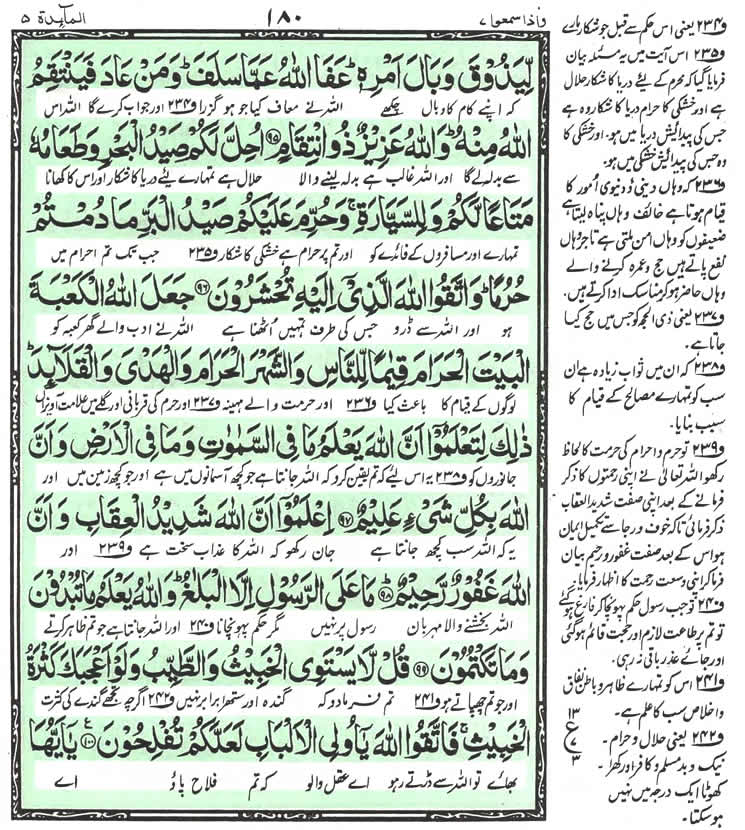 واذا سمعوا ٧
١٨٠
المآىدة ٥
لِّيَذُوْقَ وَبَالَ اَمْرِهٖ ؕ عَفَا اللّٰهُ عَمَّا سَلَفَ ؕ وَمَنْ عَادَ فَيَنْتَقِمُ
کہ اپنے کام کا وبال چکھے اللہ نے معاف کیا جو ہو گزرا و۲۳۴ اور جو اب کرے گا اللہ اس
اللّٰهُ مِنْهُ ؕ وَاللّٰهُ عَزِيْزٌ ذُو انْتِقَامٍ ﴿۹۵﴾ اُحِلَّ لَكُمْ صَيْدُ الْبَحْرِ وَطَعَامُهٗ
سے بدلہ لے گا اور اللہ غالب ہے بدلہ لینے والا حلال ہے تمہارے لیئے دریا کا شکار اور اس کا کھانا
مَتَاعًا لَّكُمْ وَلِلسَّيَّارَةِ ۚ وَحُرِّمَ عَلَيْكُمْ صَيْدُ الْبَرِّ مَا دُمْتُمْ
تمہارے اور مسافروں کے فائدے کو اور تم پر حرام ہے خشکی کا شکار و۲۳۵ جب تک تم احرام میں
حُرُمًا ؕ وَاتَّقُوا اللّٰهَ الَّذِيْۤ اِلَيْهِ تُحْشَرُوْنَ ﴿۹۶﴾ جَعَلَ اللّٰهُ الْكَعْبَةَ
ہو اور اللہ سے ڈرو جس کی طرف تمہیں اُٹھنا ہے اللہ نے ادب والے گھر کعبہ کو
الْبَيْتَ الْحَرَامَ قِيٰمًا لِّلنَّاسِ وَالشَّهْرَ الْحَرَامَ وَالْهَدْيَ وَالْقَلَآىِٕدَ ؕ
لوگوں کے قیام کا باعث کیا و۲۳۶ اور حرمت والے مہینہ و۲۳۷ اور حرم کی قربانی اور گلے میں علامت آویزاں
ذٰلِكَ لِتَعْلَمُوْۤا اَنَّ اللّٰهَ يَعْلَمُ مَا فِي السَّمٰوٰتِ وَمَا فِي الْاَرْضِ وَاَنَّ
جانوروں کو و۲۳۸ یہ اس لیئے کہ تم یقین کرو کہ اللہ جانتا ہے جو کچھ آسمانوں میں ہے اور جو کچھ زمین میں اور
اللّٰهَ بِكُلِّ شَيْءٍ عَلِيْمٌ ﴿۹۷﴾ اِعْلَمُوْۤا اَنَّ اللّٰهَ شَدِيْدُ الْعِقَابِ وَاَنَّ
یہ کہ اللہ سب کچھ جانتا ہے جان رکھو کہ اللہ کا عذاب سخت ہے و۲۳۹ اور
اللّٰهَ غَفُوْرٌ رَّحِيْمٌ ﴿۹۸﴾ مَا عَلَى الرَّسُوْلِ اِلَّا الْبَلٰغُ ؕ وَاللّٰهُ يَعْلَمُ مَا تُبْدُوْنَ
اللہ بخشنے والا مہربان رسول پر نہیں مگر حکم پہونچانا و۲۴۰ اور اللہ جانتا ہے جو تم ظاہر کرتے
وَمَا تَكْتُمُوْنَ ﴿۹۹﴾ قُلْ لَّا يَسْتَوِي الْخَبِيْثُ وَالطَّيِّبُ وَلَوْ اَعْجَبَكَ كَثْرَةُ
اور جو تم چھپاتے ہو و۲۴۱ تم فرمادو کہ گندہ اور ستھرا برابر نہیں و۲۴۲ اگرچہ تجھے گندے کی کثرت
الْخَبِيْثِ ۚ فَاتَّقُوا اللّٰهَ يٰۤاُولِي الْاَلْبَابِ لَعَلَّكُمْ تُفْلِحُوْنَ ﴿۱۰۰﴾ يٰۤاَيُّهَا
بھائے تو اللہ سے ڈرتے رہو اے عقل والو کہ تم فلاح پاؤ اے
و۲۳۴ یعنی اس حکم سے قبل جو شکار مارے
و۲۳۵ اس آیت میں یہ مسئلہ بیان
فرمایا گیا کہ محرم کے لئے دریا کا شکار حلال
ہے اور خشکی کا حرام دریا کا شکار وہ ہے
جس کی پیدائش دریا میں ہو۔ اور خشکی کا
وہ جس کی پیدائش خشکی میں ہو۔
و۲۳۶ کہ وہاں دینی و دنیوی اُمور کا
قیام ہوتا ہے خائف وہاں پناہ لیتا ہے
ضعیفوں کو وہاں امن ملتی ہے تاجر وہاں
نفع پاتے ہیں حج و عمرہ کرنے والے
وہاں حاضر ہو کر مناسک ادا کرتے ہیں۔
و۲۳۷ یعنی ذی الحجہ کو جس میں حج کیا
جاتا ہے۔
و۲۳۸ کہ ان میں ثواب زیادہ ہے ان
سب کو تمہارے مصالح کے قیام کا
سبب بنایا۔
و۲۳۹ تو حرم و احرام کی حرمت کا لحاظ
رکھو اللہ تعالیٰ نے اپنی رحمتوں کا ذکر
فرمانے کے بعد اپنی صفت شدید العقاب
ذکر فرمائی تاکہ خوف و رجا سے تکمیل ایمان
ہو اس کے بعد صفت غفور و رحیم بیان
فرما کر اپنی وسعت رحمت کا اظہار فرمایا۔
و۲۴۰ تو جب رسول حکم پہونچا کر فارغ ہو گئے
تو تم پر طاعت لازم اور حجت قائم ہو گئی
اور جائے عذر باقی نہ رہی۔
و۲۴۱ اس کو تمہارے ظاہر و باطن نفاق
و اخلاص سب کا علم ہے۔
و۲۴۲ یعنی حلال و حرام۔
نیک و بد مسلم و کافر اور کھرا۔
کھوٹا ایک درجہ میں نہیں
ہو سکتا۔
١٣
ع
٧
٣